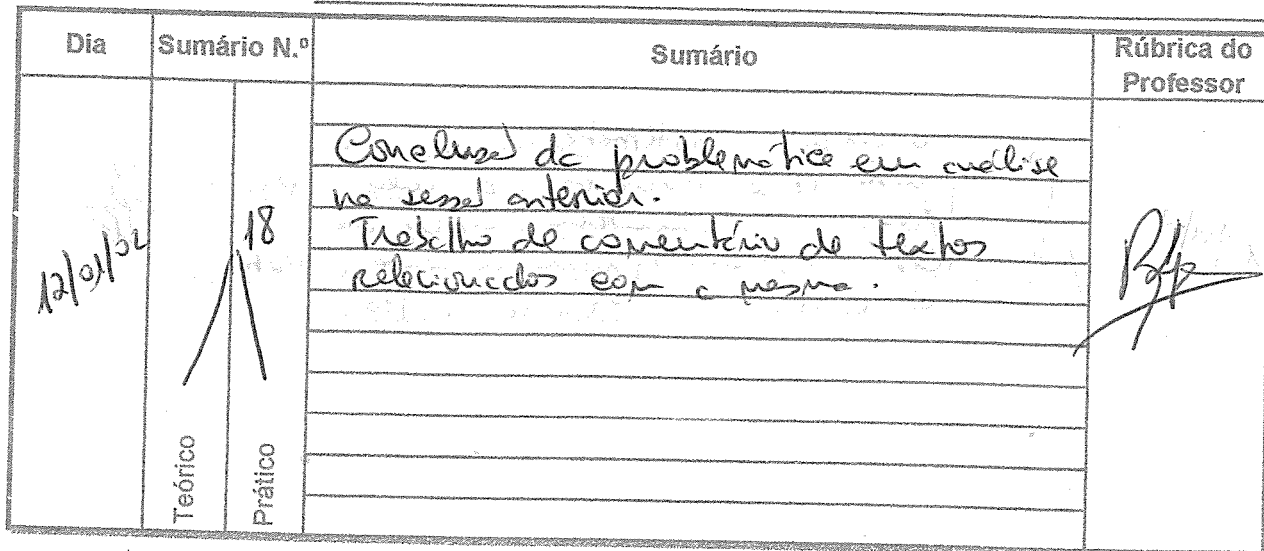 Dia Sumário N.º Sumário Rúbrica do Professor
12/01/02 18
Conclusão da problemática em análise
na sessão anterior.
Trabalho de comentário de textos
relacionados com a mesma.
Teórico Prático